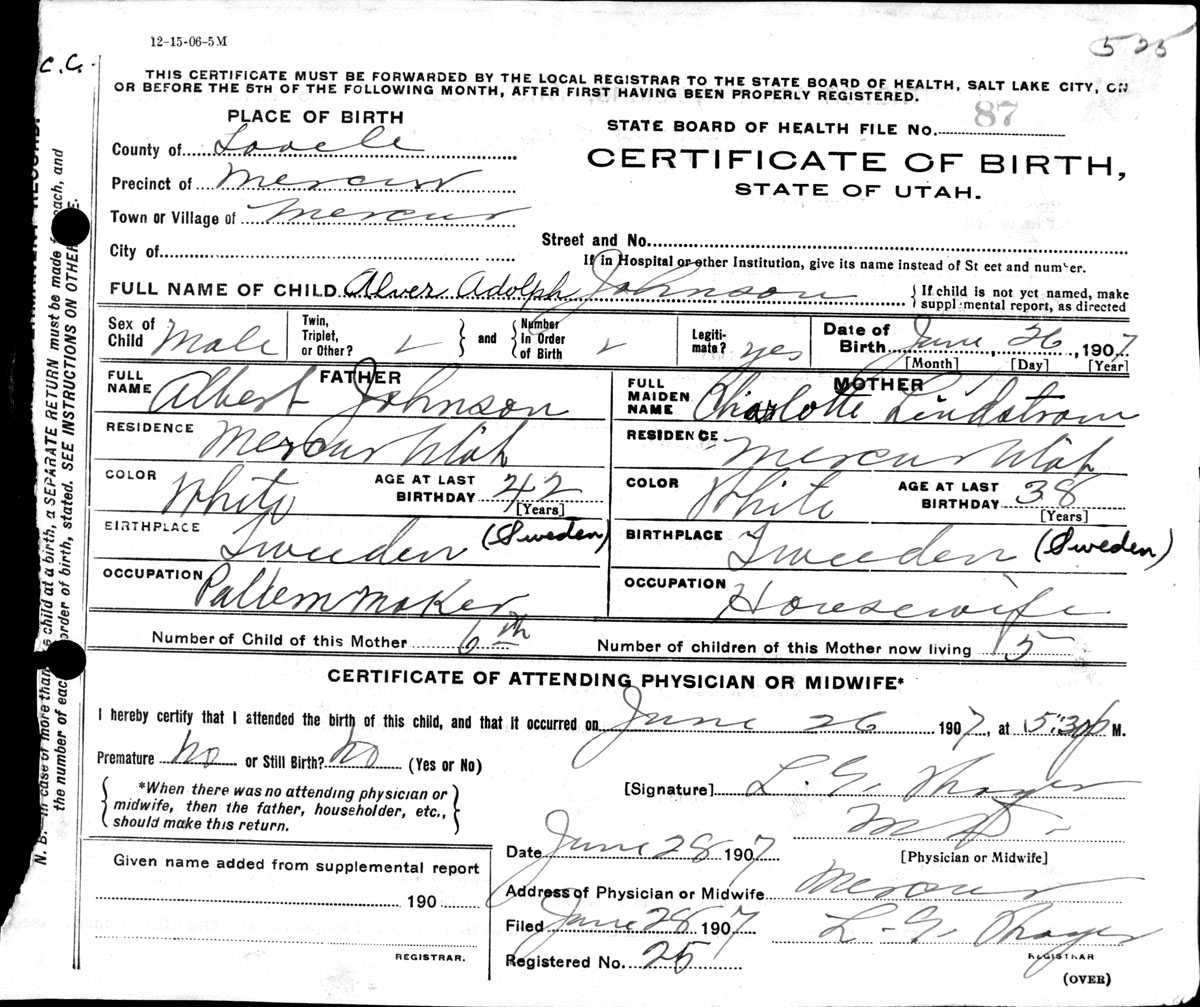 12-15-06-5M
535
C.C.
THIS CERTIFICATE MUST BE FORWARDED BY THE LOCAL REGISTRAR TO THE STATE BOARD OF HEALTH, SALT LAKE CITY, ON
OR BEFORE THE 5TH OF THE FOLLOWING MONTH, AFTER FIRST HAVING BEEN PROPERLY REGISTERED.
PLACE OF BIRTH
STATE BOARD OF HEALTH FILE No. 87
County of Tooele
CERTIFICATE OF BIRTH,
STATE OF UTAH.
Precinct of Mercur
Town or Village of Mercur
City of
Street and No.
If in Hospital or other Institution, give its name instead of St eet and number.
FULL NAME OF CHILD Alver Adolph Johnson { If child is not yet named, make
supplemental report, as directed
Sex of Child Male Twin, Triplet, or Other? ✓ } and { Number In Order of Birth ✓ Legiti-mate? yes Date of Birth June, 26, 1907
[Month] [Day] [Year]
FATHER
FULL NAME Albert Johnson
RESIDENCE Mercur Utah
COLOR White AGE AT LAST BIRTHDAY 42
[Years]
BIRTHPLACE Sweeden (Sweden)
OCCUPATION Pattern maker
MOTHER
FULL MAIDEN NAME Charlotte Lindstrom
RESIDENCE Mercur Utah
COLOR White AGE AT LAST BIRTHDAY 38
[Years]
BIRTHPLACE Sweeden (Sweden)
OCCUPATION Housewife
Number of Child of this Mother 6th Number of children of this Mother now living 5
CERTIFICATE OF ATTENDING PHYSICIAN OR MIDWIFE*
I hereby certify that I attended the birth of this child, and that it occurred on June 26 1907, at 5:30 p M.
Premature No or Still Birth? No (Yes or No)
*When there was no attending physician or
midwife, then the father, householder, etc.,
should make this return.
[Signature] L. G. Thayer
M D.
[Physician or Midwife]
Date June 28 1907
Address of Physician or Midwife Mercur
Filed June 28 1907 L. G. Thayer
REGISTRAR
Registered No. 25
(OVER)
Given name added from supplemental report
190
REGISTRAR.
N. B.—In case of more than s child at a birth, a SEPARATE RETURN must be made each, and
the number of eac order of birth, stated. SEE INSTRUCTIONS ON OTHER E.